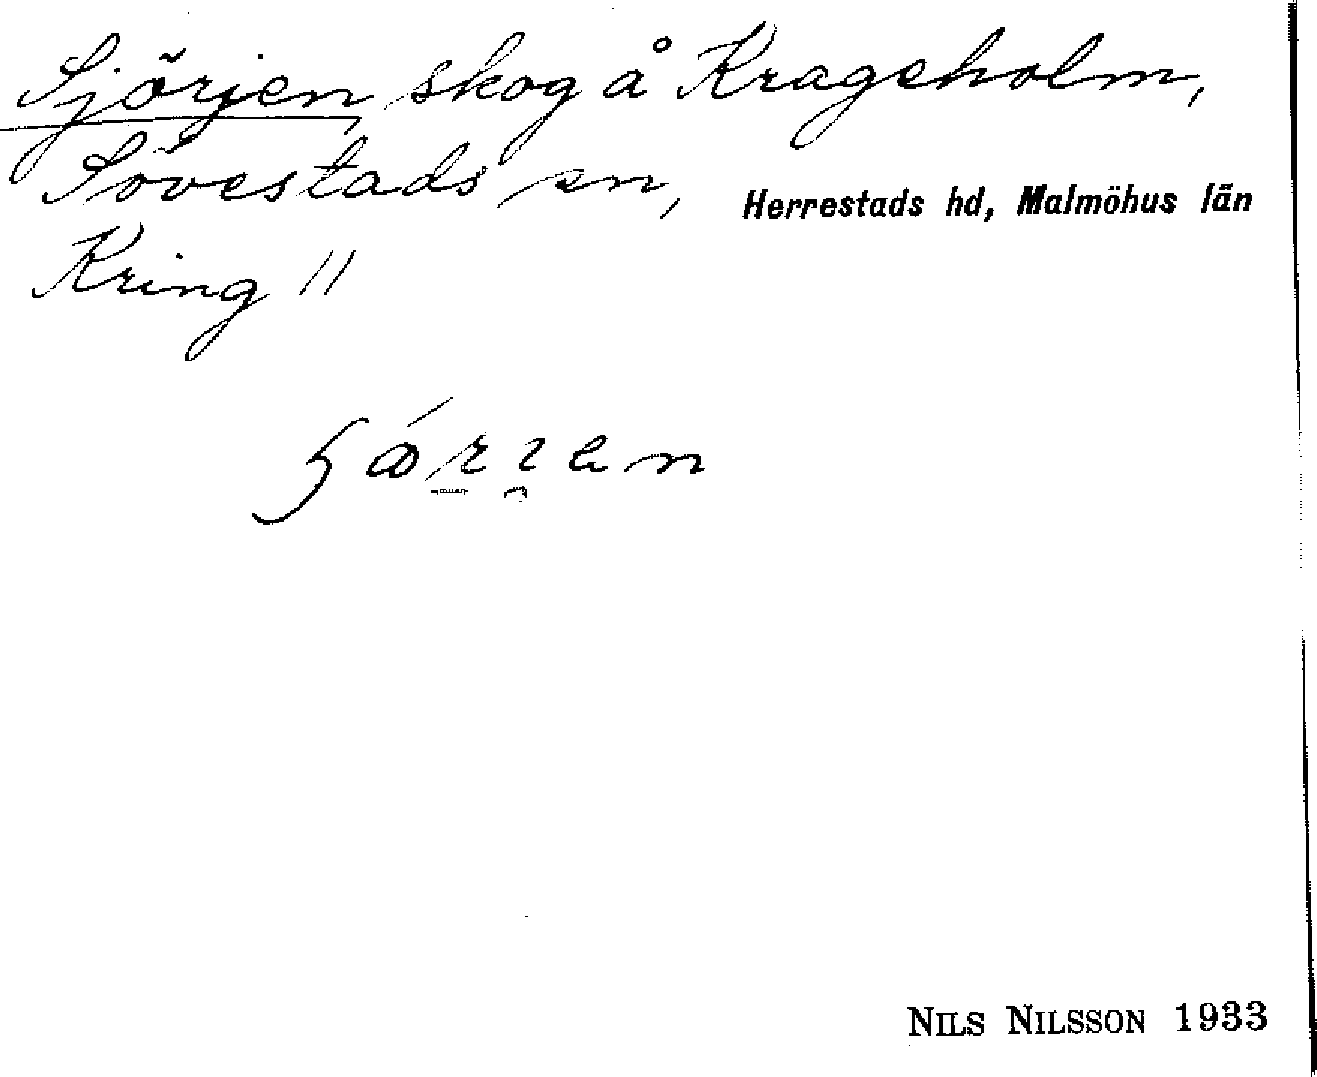 Sjörjen, skog å Krageholm,
Sövestads sn, Herrestads hd, Malmöhus län
Kring 11
NILS NILSSON 1933